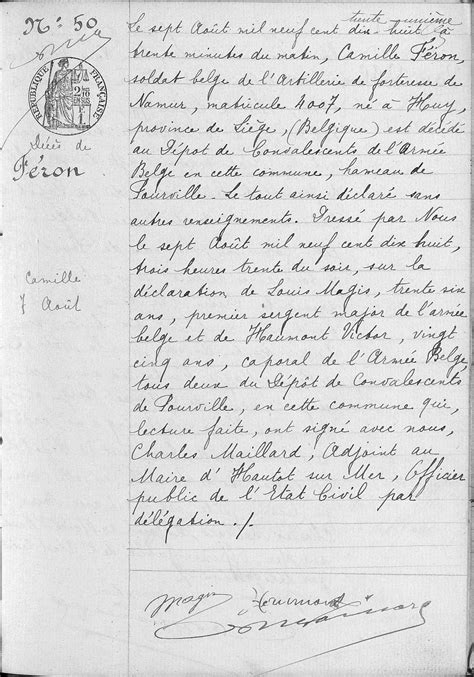 N° 50
RÉPUBLIQUE FRANÇAISE
Décès de
Féron
Camille
7 Août
Le sept Août mil neuf cent dix huit, à
trente minutes du matin, Camille Féron,
soldat belge de l'Artillerie de forteresse de
Namur, matricule 4007, né à Huy,
province de Liège, (Belgique) est décédé
au Dépot de Convalescents de l'Armée
Belge en cette commune, hameau de
Pourville. Le tout ainsi déclaré sans
autres renseignements. Dressé par Nous
le sept Août mil neuf cent dix huit,
trois heures trente du soir, sur la
déclaration de Louis Magis, trente six
ans, premier sergent major de l'armée
belge et de Haumont Victor, vingt
cinq ans, caporal de l'Armée Belge,
tous deux du Dépôt de Convalescents
de Pourville, en cette commune qui,
lecture faite, ont signé avec nous,
Charles Maillard, Adjoint au
Maire d'Hautot sur Mer, Officier
public de l'Etat Civil par
délégation ./.
Magis